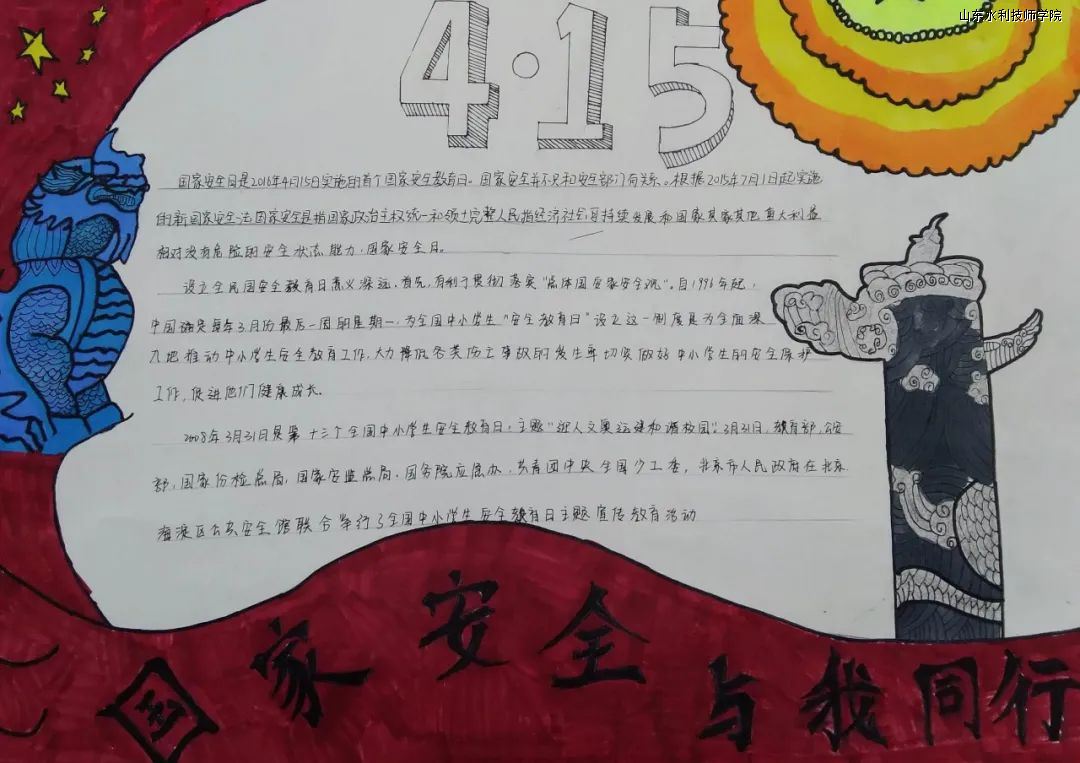 山东水利技师学院
4·15
国家安全日是2016年4月15日实施的首个国家安全教育日。国家安全并不只和安全部门有关系。根据2015年7月1日起实施
的新国家安全法国家安全是指国家政治主权统一和领土完整人民指经济社会可持续发展和国家其家其他重大利益
相对没有危险的安全状态能力，国家安全日。
设立全民国安全教育日意义深远，首先，有利于贯彻落实“总体国安家安全观”。自1996年起，
中国确定每年3月份最后一周的星期一，为全国中小学生“安全教育日”设立这一制度是为全面深
入地推动中小学生安全教育工作，大力降低各类伤亡事故的发生率切实做好中小学生的安全保护
工作，促进他们健康成长。
2008年3月31日是第十三个全国中小学生安全教育日，主题“迎人文奥运建和谐校园”。3月31日，教育部，公安
部，国家份检总局，国家安监总局，国务院应急办，共青团中央全国少工委，北京市人民政府在北京
海淀区公共安全馆联合举行了全国中小学生安全教育日主题宣传教育活动
国家安全与我同行